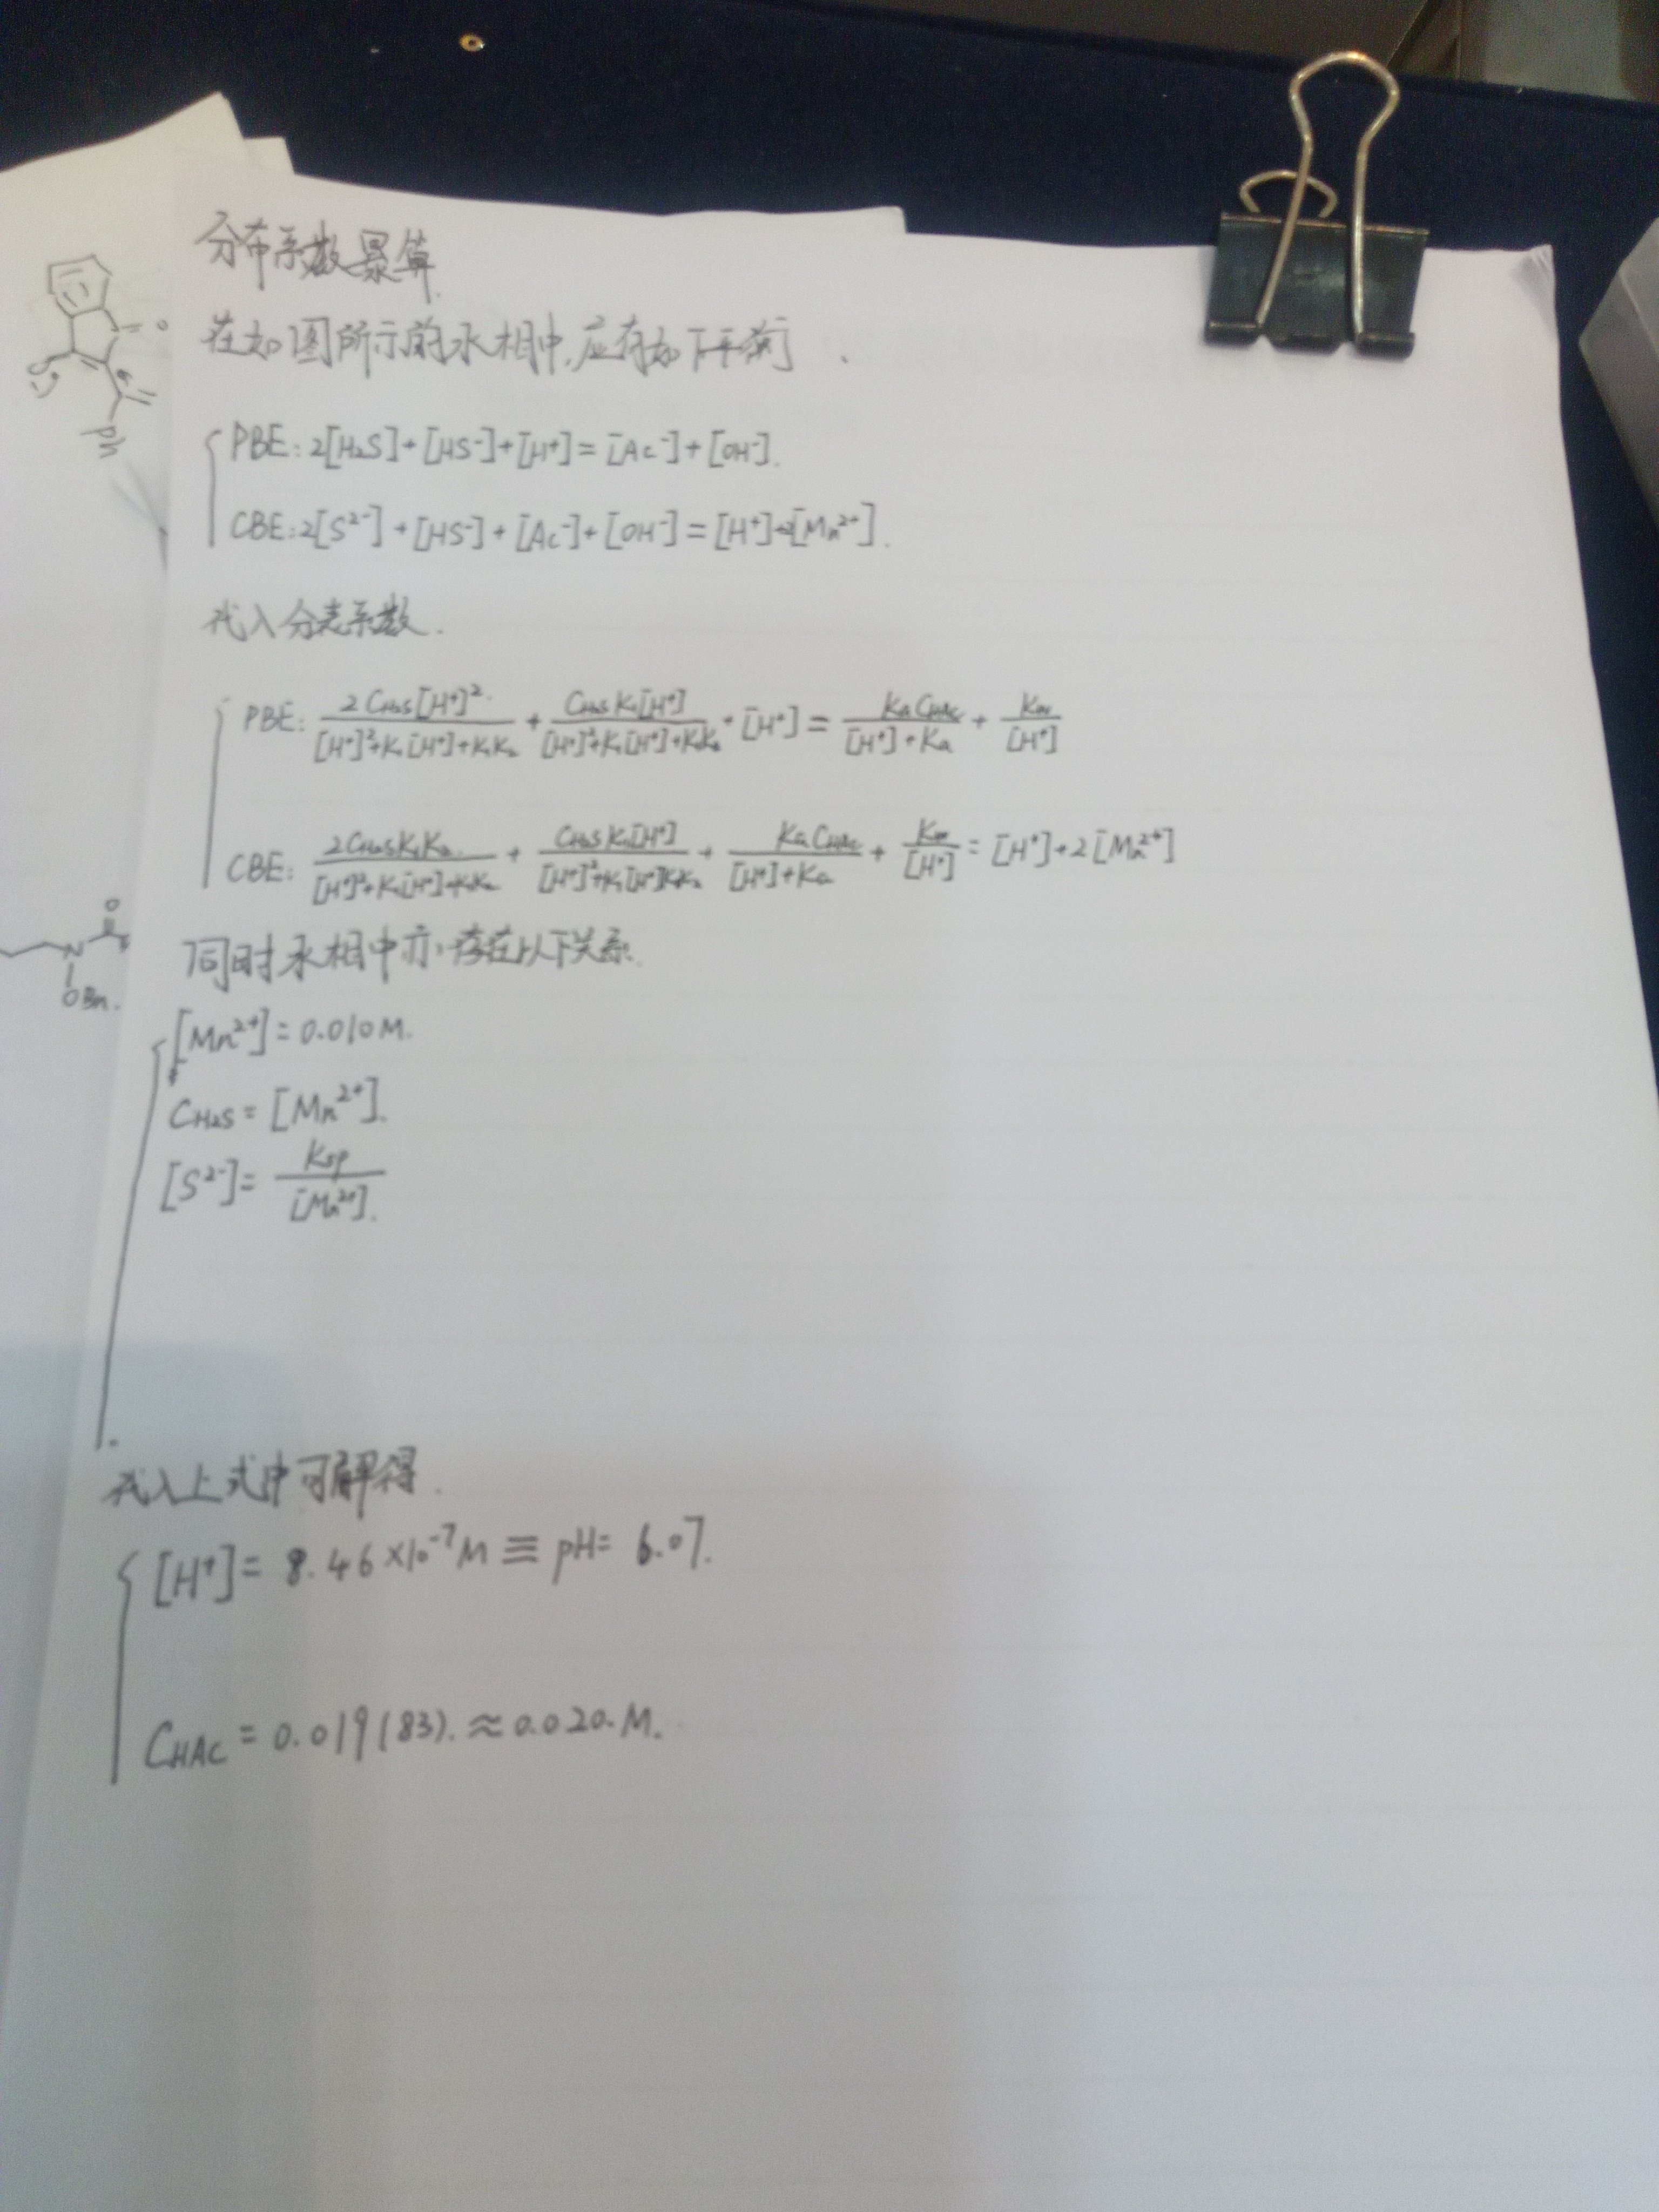 分布系数暴算.
在如图所示的水相中,应有如下平衡.
PBE: 2[H₂S]+[HS⁻]+[H⁺]=[Ac⁻]+[OH⁻].
CBE: 2[S²⁻]+[HS⁻]+[Ac⁻]+[OH⁻]=[H⁺]+2[Mn²⁺].
代入分布系数.
PBE: \frac{2C_{H₂S}[H⁺]²}{[H⁺]²+K₁[H⁺]+K₁K₂} + \frac{C_{H₂S}K₁[H⁺]}{[H⁺]²+K₁[H⁺]+K₁K₂} + [H⁺] = \frac{KaC_{HAc}}{[H⁺]+Ka} + \frac{Kw}{[H⁺]}
CBE: \frac{2C_{H₂S}K₁K₂}{[H⁺]²+K₁[H⁺]+K₁K₂} + \frac{C_{H₂S}K₁[H⁺]}{[H⁺]²+K₁[H⁺]K₁K₂} + \frac{KaC_{HAc}}{[H⁺]+Ka} + \frac{Kw}{[H⁺]} = [H⁺]+2[Mn²⁺]
同时水相中亦存在以下关系.
[Mn²⁺]=0.010M.
C_{H₂S}=[Mn²⁺].
[S²⁻]=\frac{Ksp}{[Mn²⁺]}.
代入上式中可解得.
[H⁺]=8.46×10⁻⁷M≡pH=6.07.
C_{HAc}=0.019(83).≈0.020.M.
O
O
Ph
O
N
OBn.